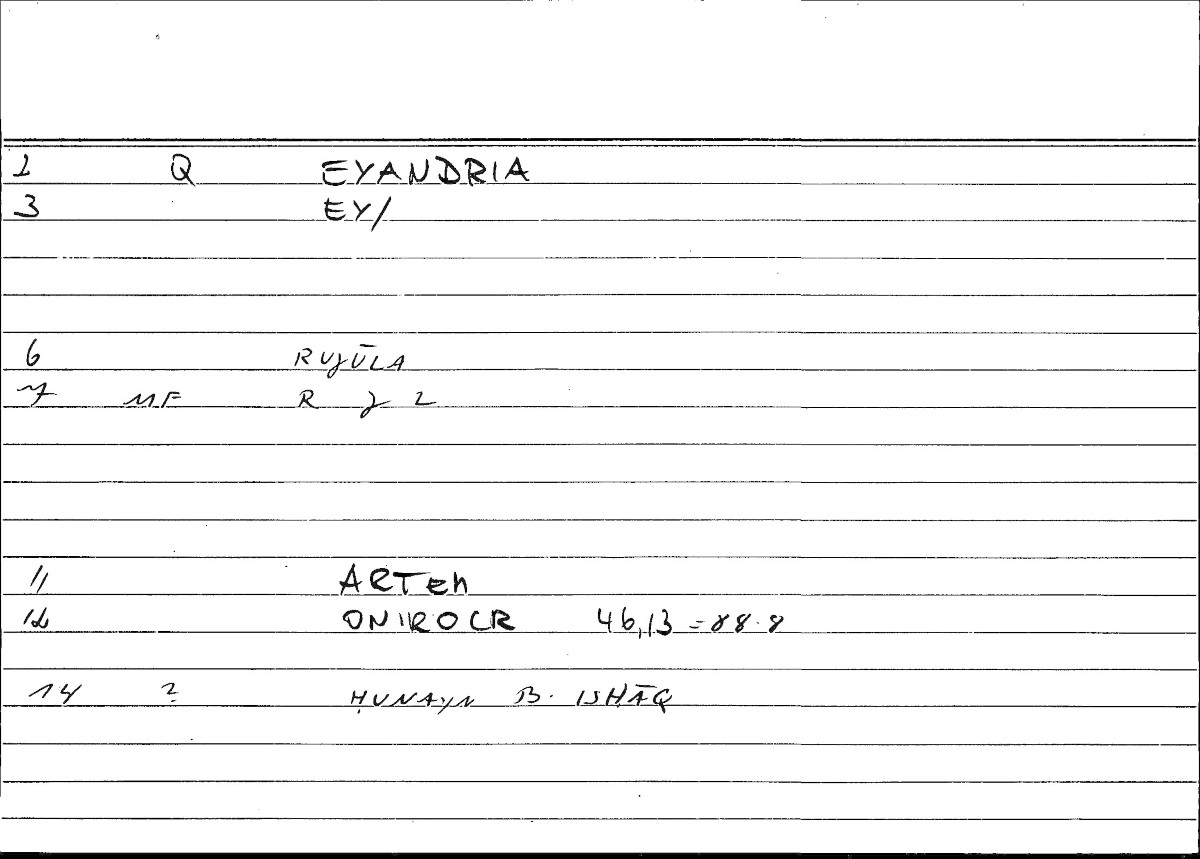 1 Q EYANDRIA
3 EY/
6 RUJŪLA
7 MF R J L
11 ARTEM
12 ONIROCR 46,13 = 88.8
14 ? ḤUNAYN B. ISḤĀQ